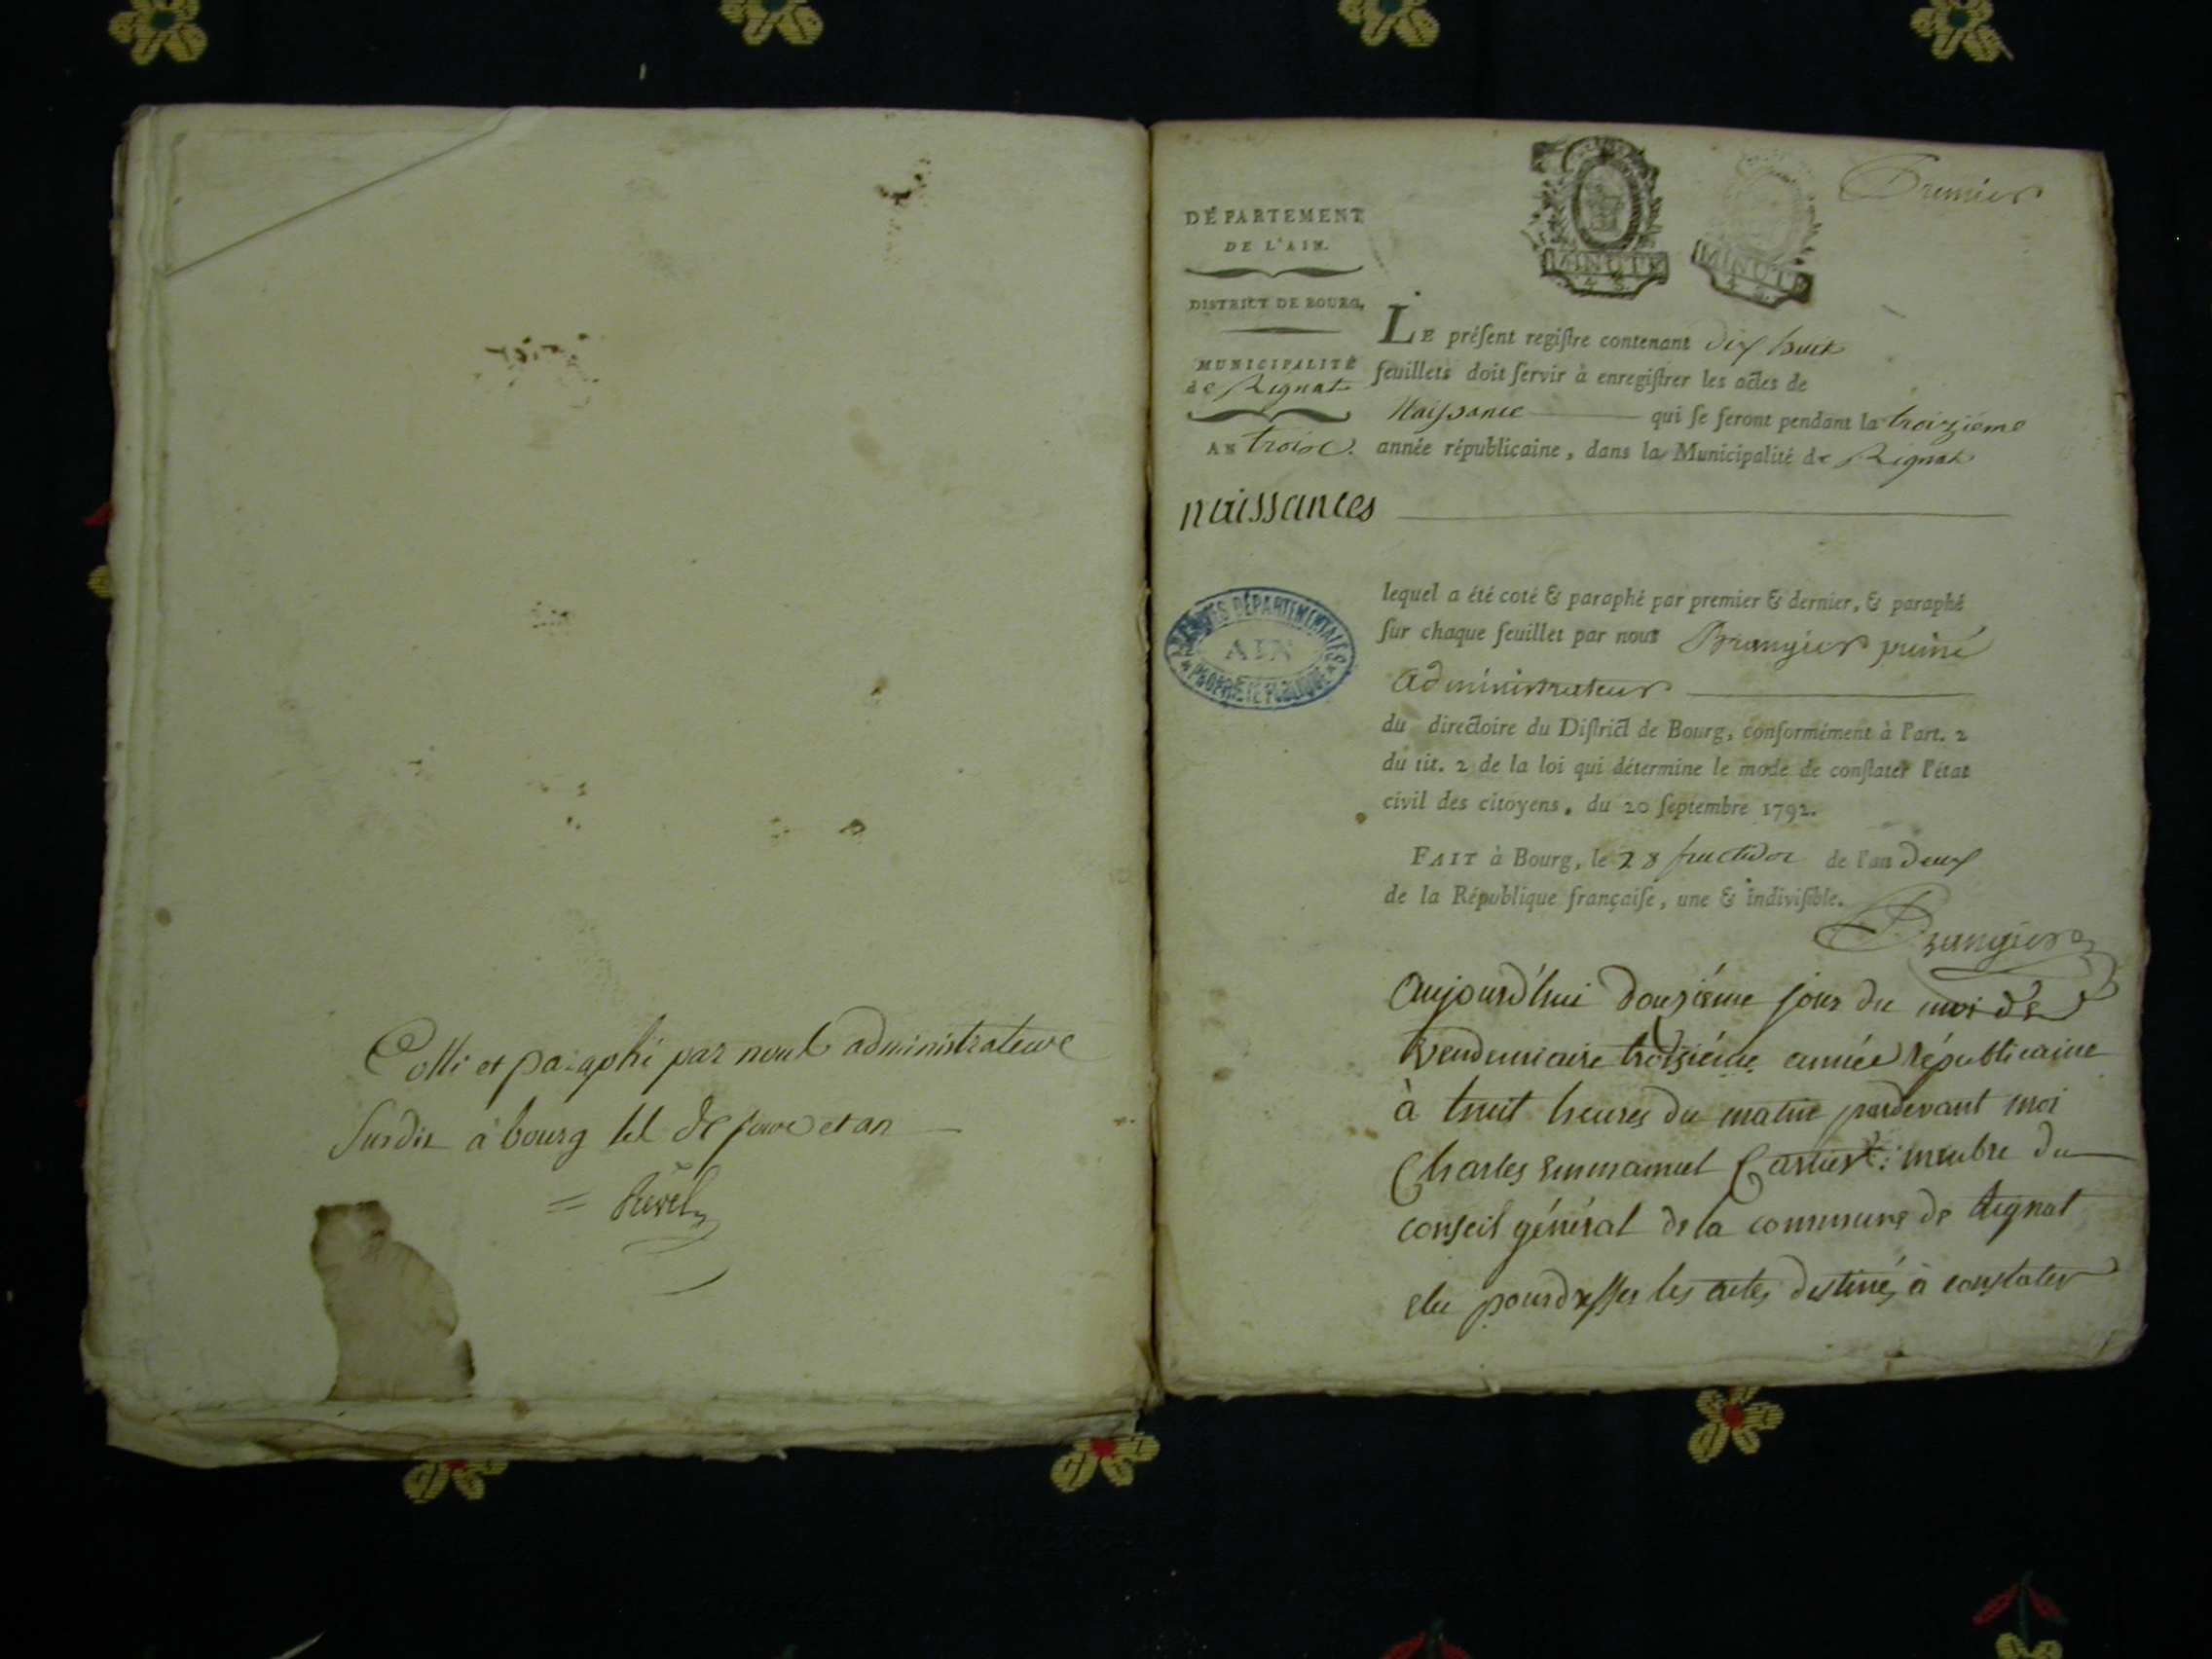 Cotté et paraphé par nous administrateur
susdit à bourg les de jour et an
Revel
Premier
DÉPARTEMENT
DE L'AIN.
DISTRICT DE BOURG.
MUNICIPALITÉ
de Rignat
AN trois.
MINUTE
4 S.
MINUTE
4 S.
LE préſent regiſtre contenant dix huit
feuillets doit ſervir à enregiſtrer les actes de
Naissance qui ſe feront pendant la troizième
année républicaine, dans la Municipalité de Rignat
naissances
ARCHIVES DÉPARTEMENTALES
AIN
* PROPRIÉTÉ PUBLIQUE *
lequel a été coté & paraphé par premier & dernier, & paraphé
ſur chaque feuillet par nous Brangier
administrateur
du directoire du Diſtrict de Bourg, conformément à l'art. 2
du tit. 2 de la loi qui détermine le mode de conſtater l'état
civil des citoyens, du 20 ſeptembre 1792.
FAIT à Bourg, le 28 fructidor de l'an deux
de la République françaiſe, une & indiviſible.
Brangier
aujourd'hui douzième jour du moi de
vendemiaire troisième année républicaine
à huit heures du matin pardevant moi
Charles Emmanuel Cartier membre du
conseil général de la commune de Rignat
elu pour dresser les actes destinés à constater